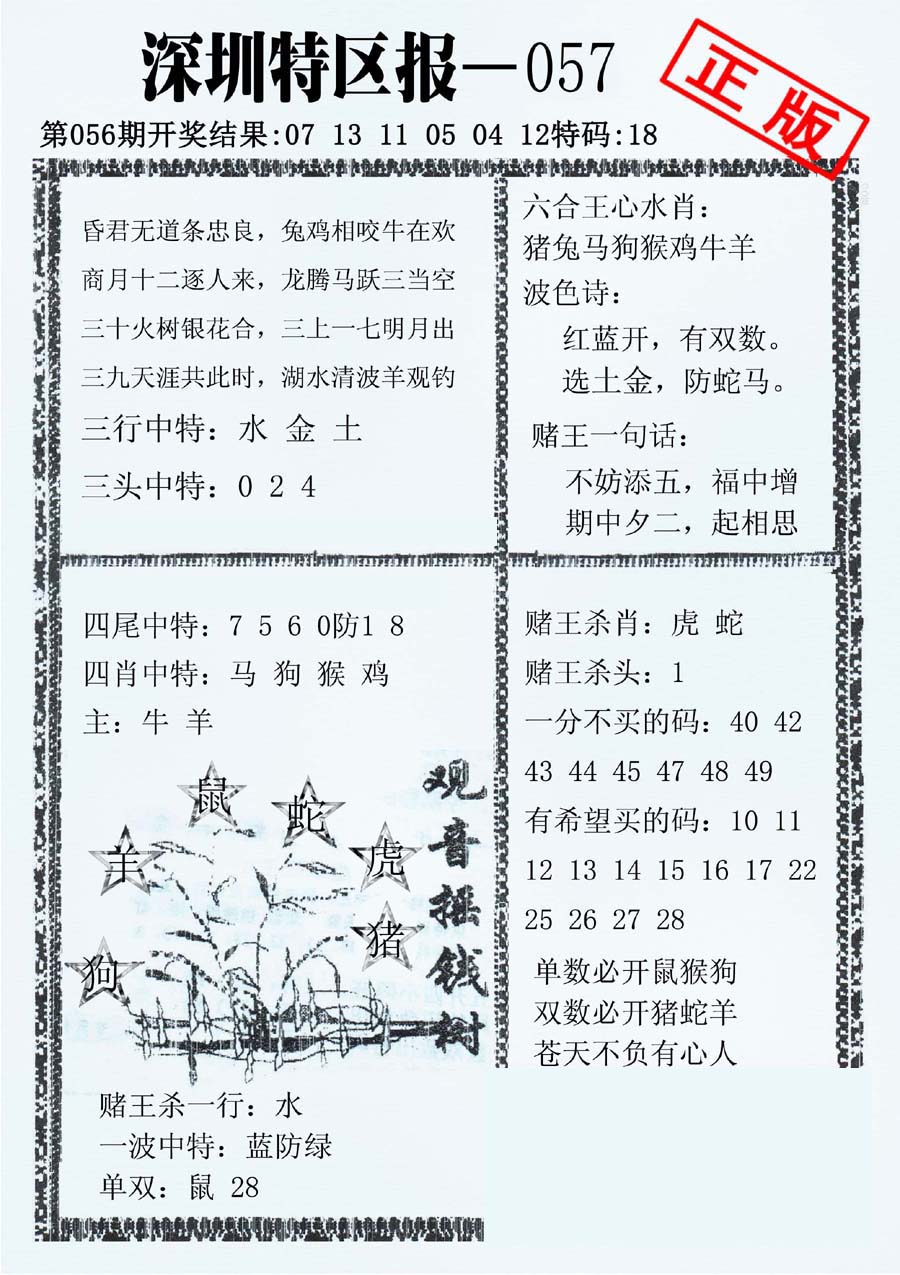 深圳特区报—057
正版
第056期开奖结果:07 13 11 05 04 12特码:18
昏君无道条忠良，兔鸡相咬牛在欢
商月十二逐人来，龙腾马跃三当空
三十火树银花合，三上一七明月出
三九天涯共此时，湖水清波羊观钓
三行中特：水 金 土
三头中特：0 2 4
六合王心水肖：
猪兔马狗猴鸡牛羊
波色诗：
红蓝开，有双数。
选土金，防蛇马。
赌王一句话：
不妨添五，福中增
期中夕二，起相思
四尾中特：7 5 6 0防1 8
四肖中特：马 狗 猴 鸡
主：牛 羊
鼠
蛇
羊
虎
猪
狗
观音摇钱树
赌王杀一行：水
一波中特：蓝防绿
单双：鼠 28
赌王杀肖：虎 蛇
赌王杀头：1
一分不买的码：40 42
43 44 45 47 48 49
有希望买的码：10 11
12 13 14 15 16 17 22
25 26 27 28
单数必开鼠猴狗
双数必开猪蛇羊
苍天不负有心人